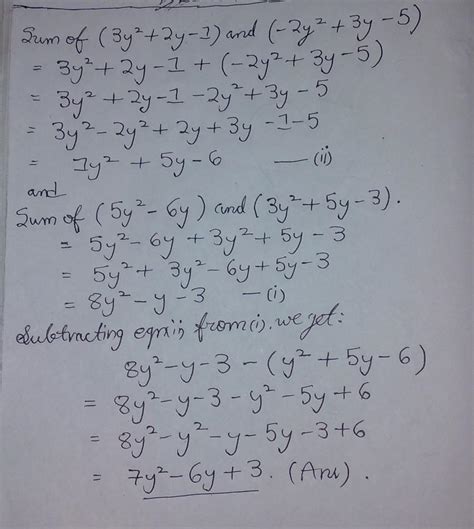 Sum of (3y²+2y-1) and (-2y²+3y-5)
= 3y²+2y-1 + (-2y²+3y-5)
= 3y²+2y-1 -2y²+3y-5
= 3y²-2y²+2y+3y-1-5
= 1y²+5y-6 —(ii)
and
Sum of (5y²-6y) and (3y²+5y-3).
= 5y²-6y+3y²+5y-3
= 5y²+3y²-6y+5y-3
= 8y²-y-3 —(i)
Subtracting eqn(ii) from(i). we get:
8y²-y-3-(y²+5y-6)
= 8y²-y-3-y²-5y+6
= 8y²-y²-y-5y-3+6
= 7y²-6y+3. (Ans).